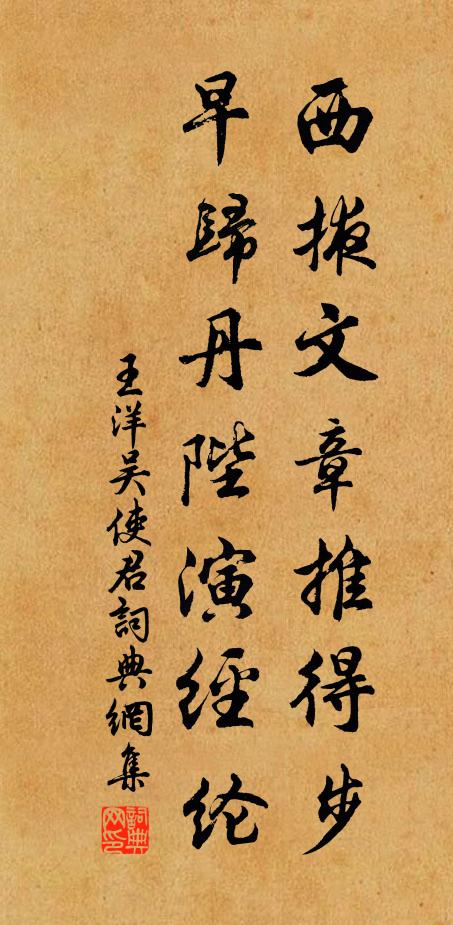 西掖文章推得步
早歸丹陛演經纶
王洋吴使君詞典網集
詞典网印